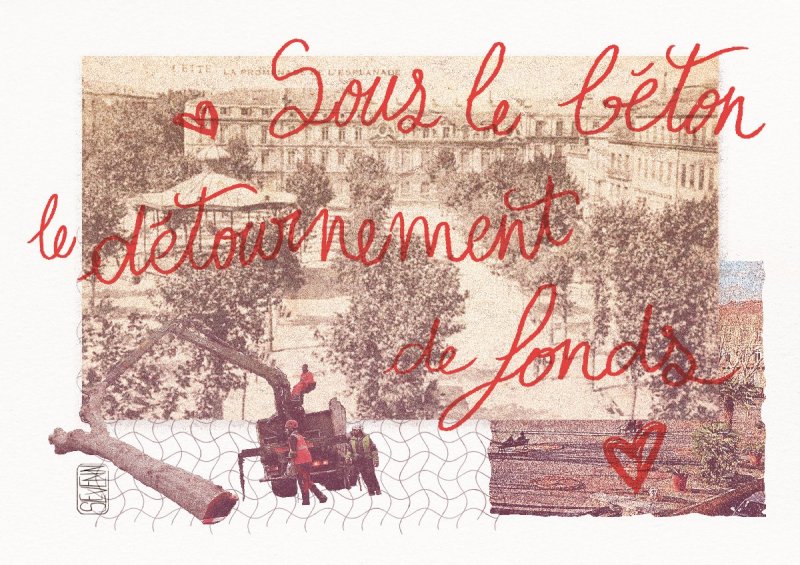 CETTE LA PROMENADE L'ESPLANADE
Sous le béton
le détournement
de fonds
SEVENN